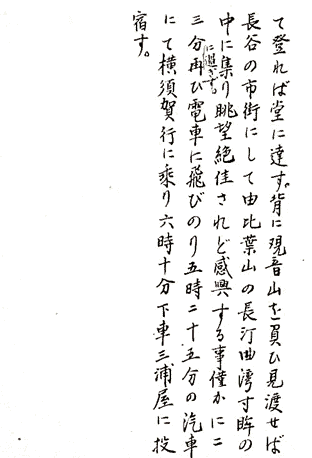 て登れば堂に達す。背に観音山を負ひ見渡せば
長谷の市街にして由比葉山の長汀曲湾寸眸の
中に集り眺望絶佳されど感興する事僅かに二
三分に過ぎず再び電車に飛びのり五時二十五分の汽車
にて横須賀行に乗り六時十分下車三浦屋に投
宿す。